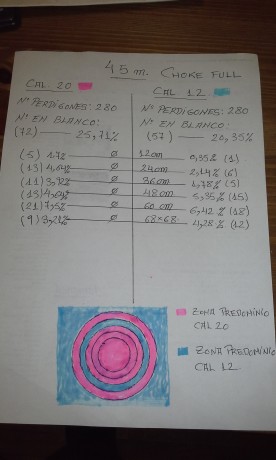 45 m. CHOKE FULL
CAL. 20 CAL 12
Nº PERDIGONES: 280 Nº PERDIGONES: 280
Nº EN BLANCO: Nº EN BLANCO:
(72) 25,71% (57) 20,35%
(5) 1,7% Ø 12cm 0,35% (1)
(13) 4,64% Ø 24cm 2,14% (6)
(11) 3,92% Ø 36cm 1,78% (5)
(13) 4,64% Ø 48cm 5,35% (15)
(21) 7,5% Ø 60 cm 6,42% (18)
(9) 3,21% Ø 68x68 4,28% (12)
ZONA PREDOMINIO
CAL 20
ZONA PREDOMINIO
CAL 12